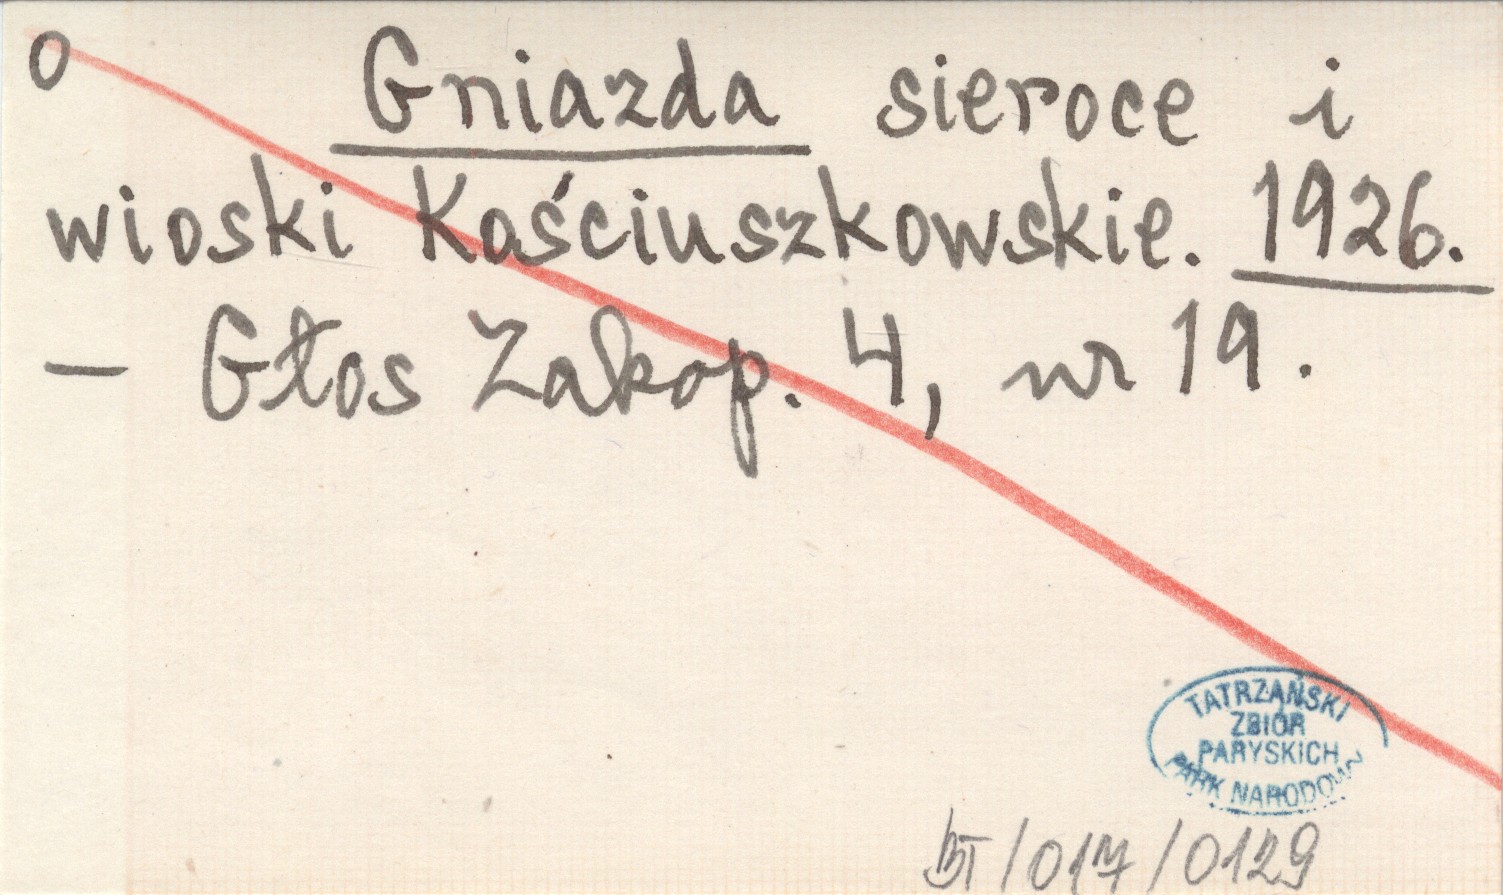 o Gniazda sieroce i
wioski Kościuszkowskie. 1926.
— Głos Zakop. 4, nr 19.
TATRZAŃSKI
ZBIÓR
PARYSKICH
PARK NARODOWY
BT/017/0129